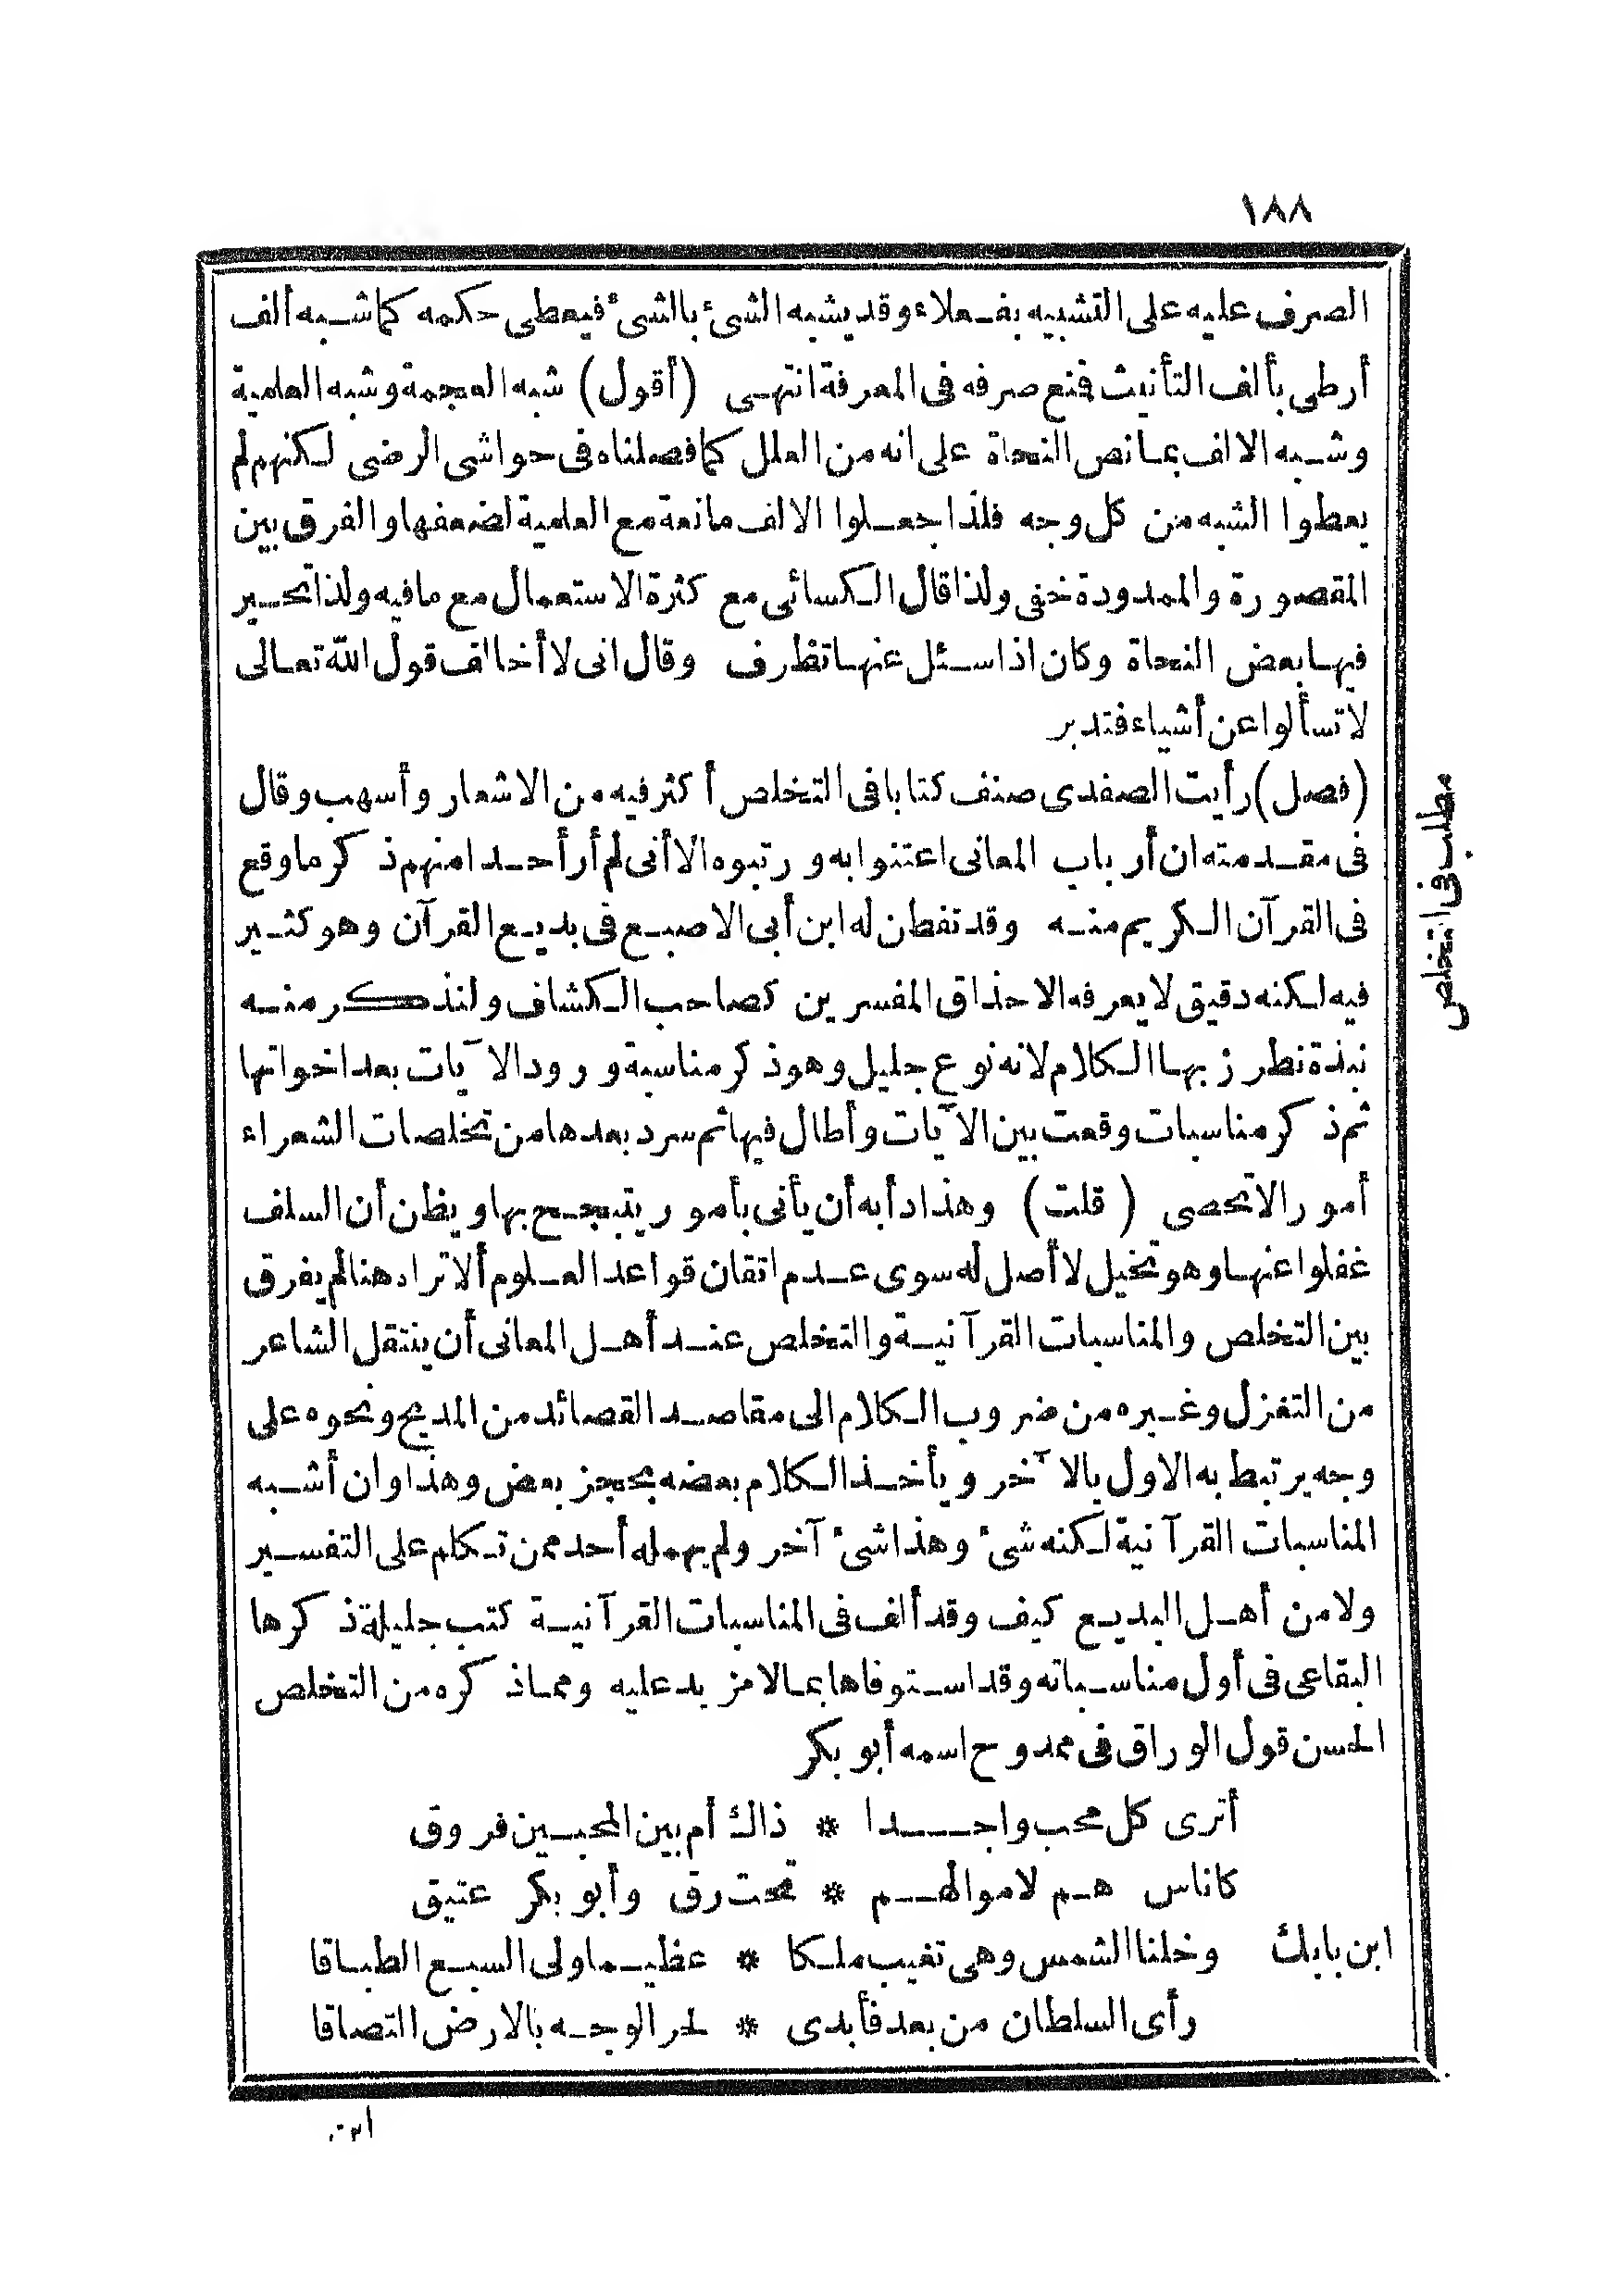 ١٨٨
الصرف عليه على التشبيه بفعلاء وقد يشبه الشئ بالشئ فيعطى حكمه كما شبه ألف
أرطى بألف التأنيث فمنع صرفه فى المعرفة انتهى (أقول) شبه العجمة وشبه العلمية
وشبه الالف بما نص النحاة على انه من العلل كما فصلناه فى حواشى الرضى لكنهم لم
يعطوا الشبه من كل وجه فلذا جعلوا الالف مانعة مع العلمية لضعفها والفرق بين
المقصورة والممدودة خفى ولذا قال الكسائى مع كثرة الاستعمال مع ما فيه ولذا تحير
فيها بعض النحاة وكان اذا سئل عنها تظرف وقال انى لا أخالف قول الله تعالى
لا تسألوا عن أشياء فتدبر
(فصل) رأيت الصفدى صنف كتابا فى التخلص أكثر فيه من الاشعار وأسهب وقال
فى مقدمته ان أرباب المعانى اعتنوا به ورتبوه الا أنى لم أر أحدا منهم ذكر ما وقع
فى القرآن الكريم منه وقد تفطن له ابن أبى الاصبع فى بديع القرآن وهو كثير
فيه لكنه دقيق لا يعرفه الا حذاق المفسرين كصاحب الكشاف ولنذكر منه
نبذة نطرز بها الكلام لانه نوع جليل وهو ذكر مناسبة ورود الآيات بعد اخواتها
ثم ذكر مناسبات وقعت بين الآيات وأطال فيها ثم سرد بعدها من تخلصات الشعراء
أمورا لا تحصى (قلت) وهذا دأبه أن يأتى بأمور يتبجح بها ويظن أن السلف
غفلوا عنها وهو تخيل لا أصل له سوى عدم اتقان قواعد العلوم ألا تراه هنا لم يفرق
بين التخلص والمناسبات القرآنية والتخلص عند أهل المعانى أن ينتقل الشاعر
من التغزل وغيره من ضروب الكلام الى مقاصد القصائد من المديح ونحوه على
وجه يرتبط به الاول بالآخر ويأخذ الكلام بعضه بحجز بعض وهذا وان أشبه
المناسبات القرآنية لكنه شئ وهذا شئ آخر ولم يهمله أحد ممن تكلم على التفسير
ولا من أهل البديع كيف وقد ألف فى المناسبات القرآنية كتب جليلة ذكرها
البقاعى فى أول مناسباته وقد استوفاها بما لا مزيد عليه ومما ذكره من التخلص
الحسن قول الوراق فى ممدوح اسمه أبو بكر
أترى كل محب واجدا * ذاك أم بين المحبين فروق
كاناس هم لاموالهم * تحت رق وأبو بكر عتيق
ابن بابك وخلنا الشمس وهى تغيب ملكا * عظيما ولى السبع الطباقا
رأى السلطان من بعد فأبدى * لحر الوجه بالارض التصاقا
ابن
مطلب فى التخلص